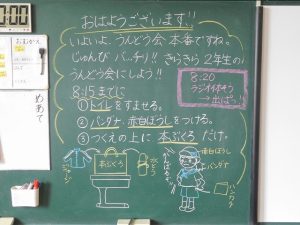 おはようございます!!
いよいよ、うんどう会 本番ですね。
じゅんび バッチリ!! きらきら2年生の
うんどう会にしよう!!
8:20
ラジオたいそう
→出ぱつ!!
8:15までに
①トイレをすませる。
②バンダナ、赤白ぼうしをつける。
③つくえの上に 本ぶくろ だけ。
めあて
本ぶくろ
すいとう
がんばるぞ
赤白ぼうし
バンダナ
ハンカチ